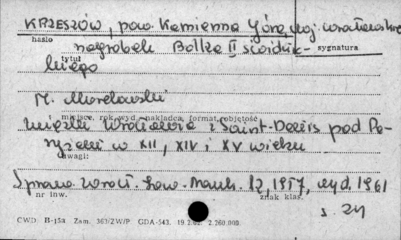 KRZESZÓW, pow. Kamienna Góra, woj. wrocławskie
hasło
nagrobek Bolka II świdnic-
sygnatura
tytuł
kiego
M. Morelowski
miejsce, rok wyd., nakładca, format, objętość
między Wrocławiem i Saint-Denis pod Pa-
ryżem w XII, XIV i XV wieku
uwagi:
Spraw. Wrocł. Tow. Nauk. 12, 1957, wyd. 1961
nr inw.
znak klas.
s. 24
CWD H-15a Zam. 363/ZW/P GDA-543. 19.2.62 2.260.000.